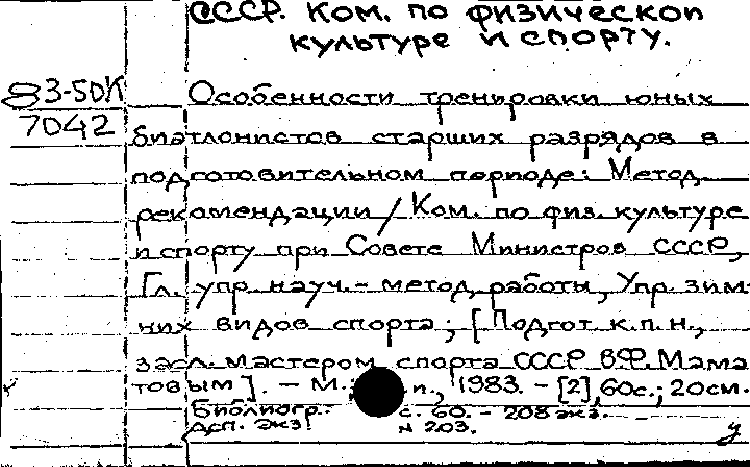 СССР. Ком. по физической
культуре и спорту.
83-50К
7042
Особенности тренировки юных
биатлонистов старших разрядов в
подготовительном периоде: Метод.
рекомендации / Ком. по физ. культуре
и спорту при Совете Министров СССР,
Гл. упр. науч.- метод. работы, Упр. зим-
них видов спорта; [Подгот. к.п.н.,
засл. мастером спорта СССР В.Ф. Мама
товым]. - М.; п., 1983. - [2], 60с.; 20см.
Библиогр.: с. 60. - 208 экз.
Дсп. экз. N 203.
у